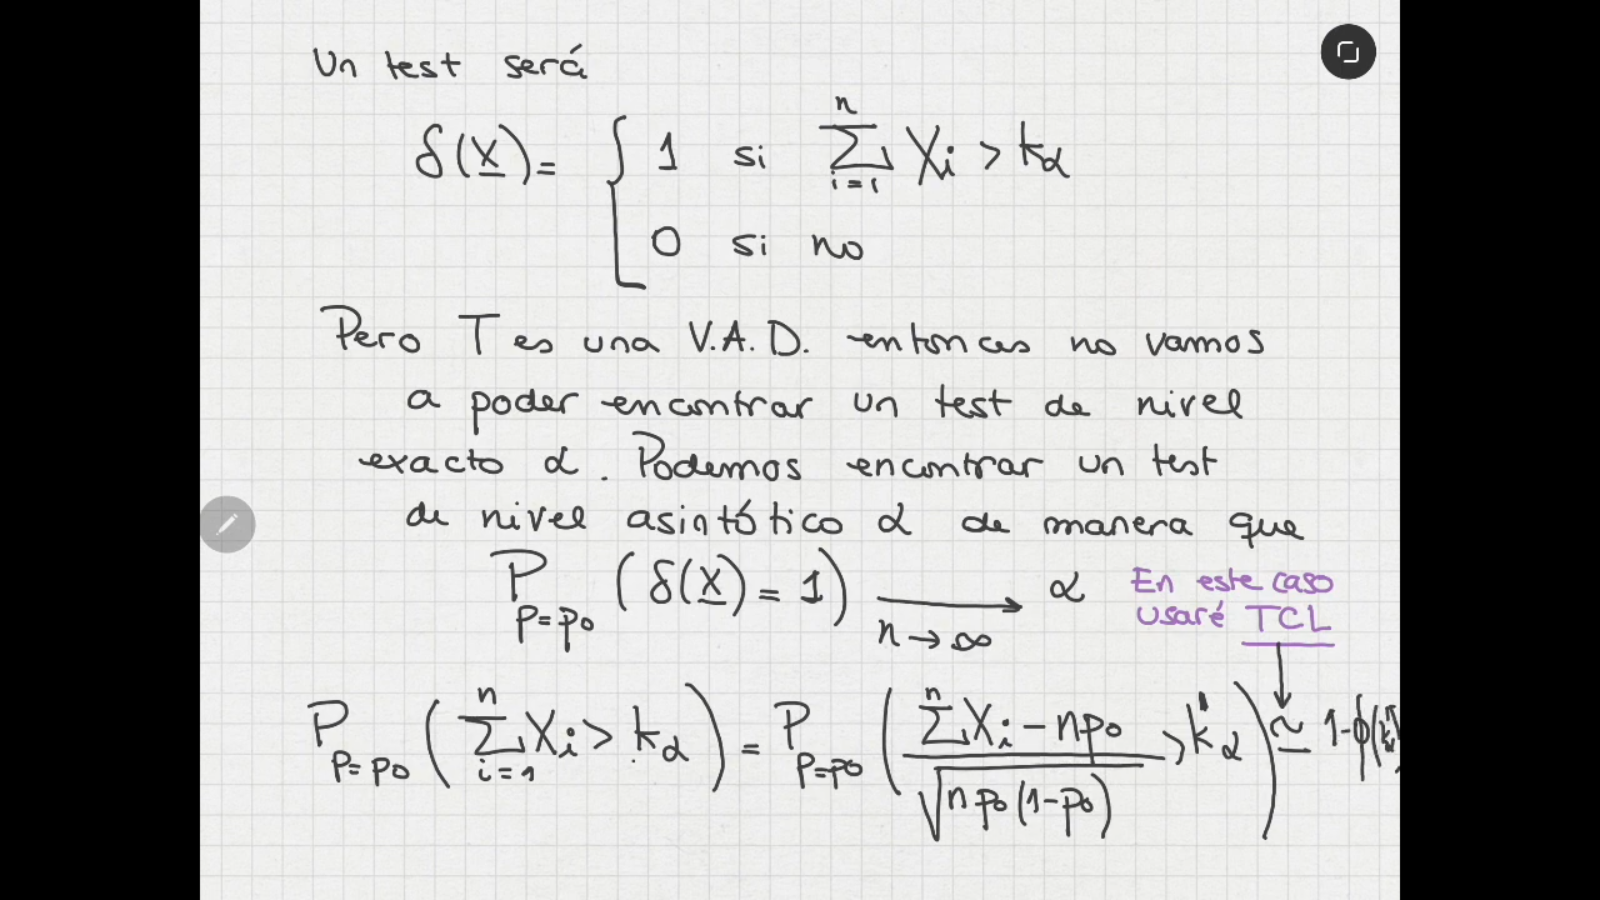 Un test será
δ(X) = { 1 si ∑_{i=1}^{n} Xi > kα
0 si no
Pero T es una V.A.D. entonces no vamos
a poder encontrar un test de nivel
exacto α. Podemos encontrar un test
de nivel asintótico α de manera que
P_{P=p0} (δ(X) = 1) → α
n→∞
En este caso
usaré TCL
P_{P=p0} (∑_{i=1}^{n} Xi > kα) = P_{P=p0} ((∑^{n} Xi - np0) / √(np0(1-p0)) > k'α) ≃ 1-ϕ(k'α)